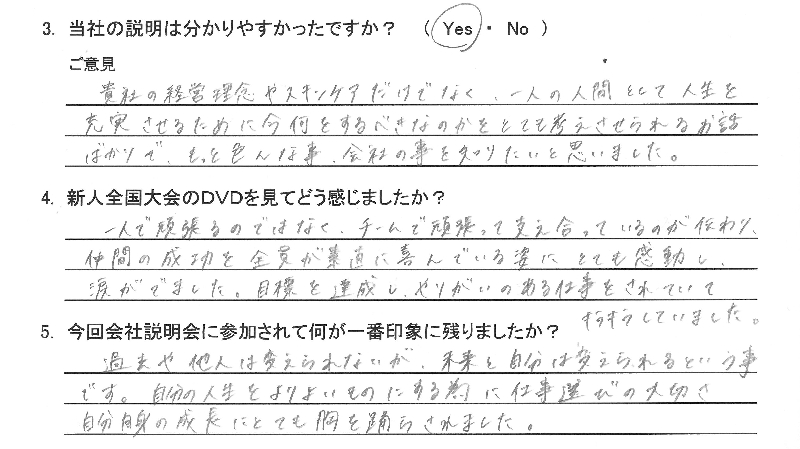 3. 当社の説明は分かりやすかったですか？ （ Yes ・ No ）
ご意見
貴社の経営理念やスキンケアだけでなく、一人の人間として人生を
充実させるために今何をするべきなのかをとても考えさせられるお話
ばかりで、もっと色んな事、会社の事を知りたいと思いました。
4. 新人全国大会のDVDを見てどう感じましたか？
一人で頑張るのではなく、チームで頑張って支え合っているのが伝わり、
仲間の成功を全員が素直に喜んでいる姿にとても感動し、
涙がでました。目標を達成し、やりがいのある仕事をされていて
キラキラしていました。
5. 今回会社説明会に参加されて何が一番印象に残りましたか？
過去や他人は変えられないが、未来と自分は変えられるという事
です。自分の人生をよりよいものにする為に仕事選びの大切さ
自分自身の成長にとても胸を踊らされました。